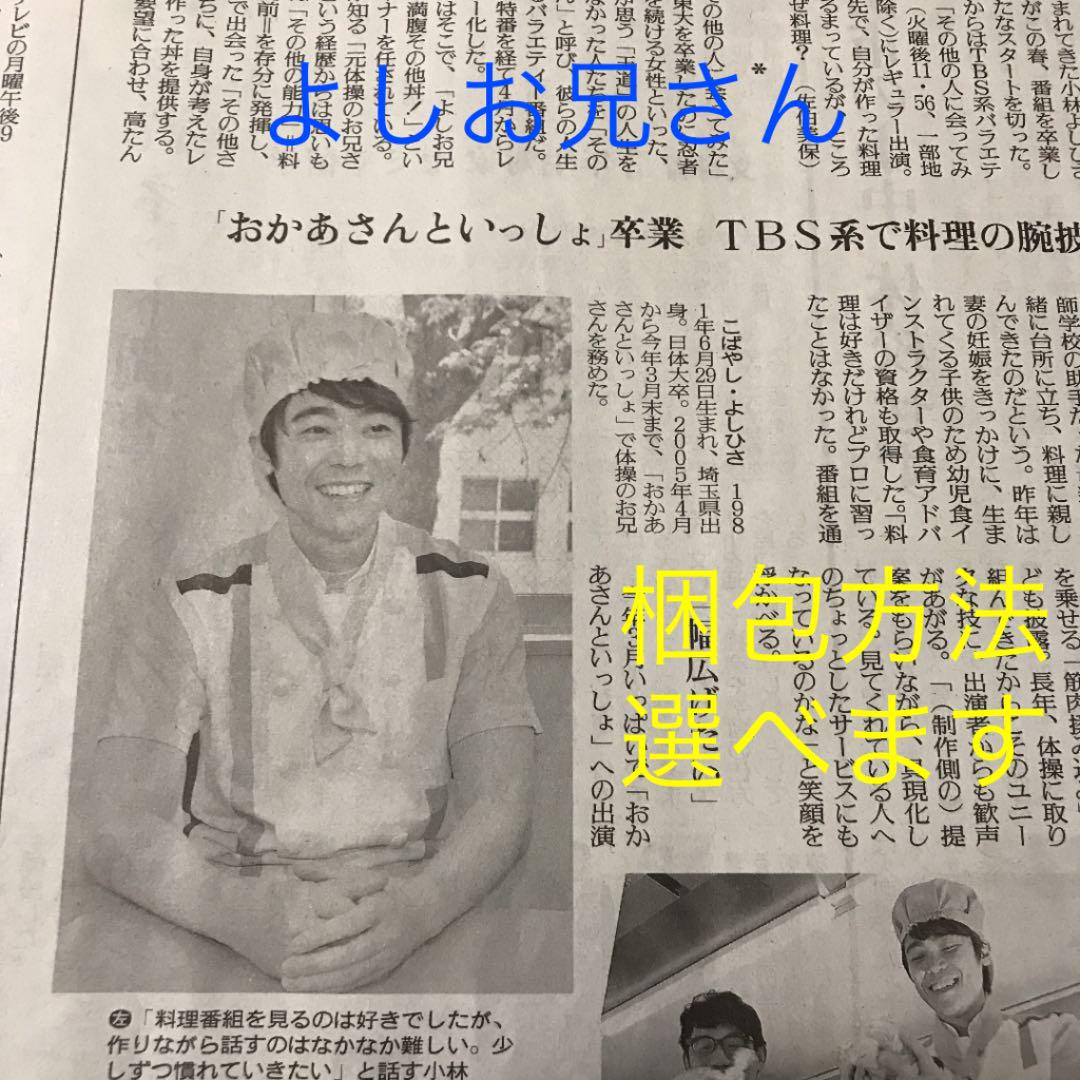 よしお兄さん
まれてきた小林よしひさ
がこの春、番組を卒業し
たなスタートを切った。
からはTBS系バラエテ
「その他の人に会ってみ
(火曜後11・56、一部地
除く)にレギュラー出演。
先で、自分が作った料理
るまっているが、ところ
ぜ料理? (佐伯美保)
*
その他の人に会ってみた」
東大を卒業したのに忍者
を続ける女性といった、
が思う「王道」の人生を
なかった人たちを「その
」と呼び、彼らの人生
るバラエティー番組だ。
特番を経て4月からレ
ー化した。
はそこで、「よしお兄
満腹その他丼!」とい
ナーを任されている。
知る「元体操のお兄さ
いう経歴からは思いも
「その他の能力」=料
前=を存分に発揮し、
で出会った「その他さ
ちに、自身が考えたレ
作った丼を提供する。
要望に合わせ、高たん
レビの月曜午後9
「おかあさんといっしょ」卒業 TBS系で料理の腕披
師学校の助手だった
緒に台所に立ち、料理に親し
んできたのだという。昨年は
妻の妊娠をきっかけに、生ま
れてくる子供のため幼児食イ
ンストラクターや食育アドバ
イザーの資格も取得した。「料
理は好きだけれどプロに習っ
たことはなかった。番組を通
こばやし・よしひさ 198
1年6月29日生まれ、埼玉県出
身。日体大卒。2005年4月
から今年3月末まで、「おかあ
さんといっしょ」で体操のお兄
さんを務めた。
梱包方法
選べます
ども披露。長年、体操に取り
組んできたからこそのユニー
クな技に、出演者からも歓声
があがる。「(制作側の)提
案をもらいながら、具現化し
ている。見てくれている人へ
のちょっとしたサービスにも
なっているのかな」と笑顔を
浮かべる。
幅広げたい」
今年3月いっぱいで「おか
あさんといっしょ」への出演
左「料理番組を見るのは好きでしたが、
作りながら話すのはなかなか難しい。少
しずつ慣れていきたい」と話す小林